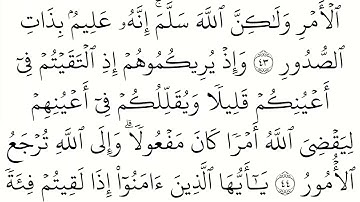 ٱلۡأَمۡرِ وَلَٰكِنَّ ٱللَّهَ سَلَّمَۚ إِنَّهُۥ عَلِيمُۢ بِذَاتِ
ٱلصُّدُورِ ٤٣ وَإِذۡ يُرِيكُمُوهُمۡ إِذِ ٱلۡتَقَيۡتُمۡ فِيٓ
أَعۡيُنِكُمۡ قَلِيلٗا وَيُقَلِّلُكُمۡ فِيٓ أَعۡيُنِهِمۡ
لِيَقۡضِيَ ٱللَّهُ أَمۡرٗا كَانَ مَفۡعُولٗاۗ وَإِلَى ٱللَّهِ تُرۡجَعُ
ٱلۡأُمُورُ ٤٤ يَٰٓأَيُّهَا ٱلَّذِينَ ءَامَنُوٓاْ إِذَا لَقِيتُمۡ فِئَةٗ